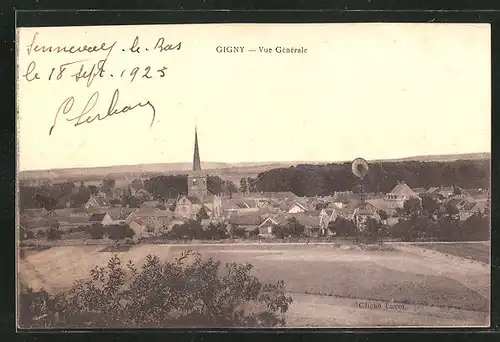 Sennevoy-le-Bas
le 18 Sept. 1925
GIGNY — Vue Générale
Cliché